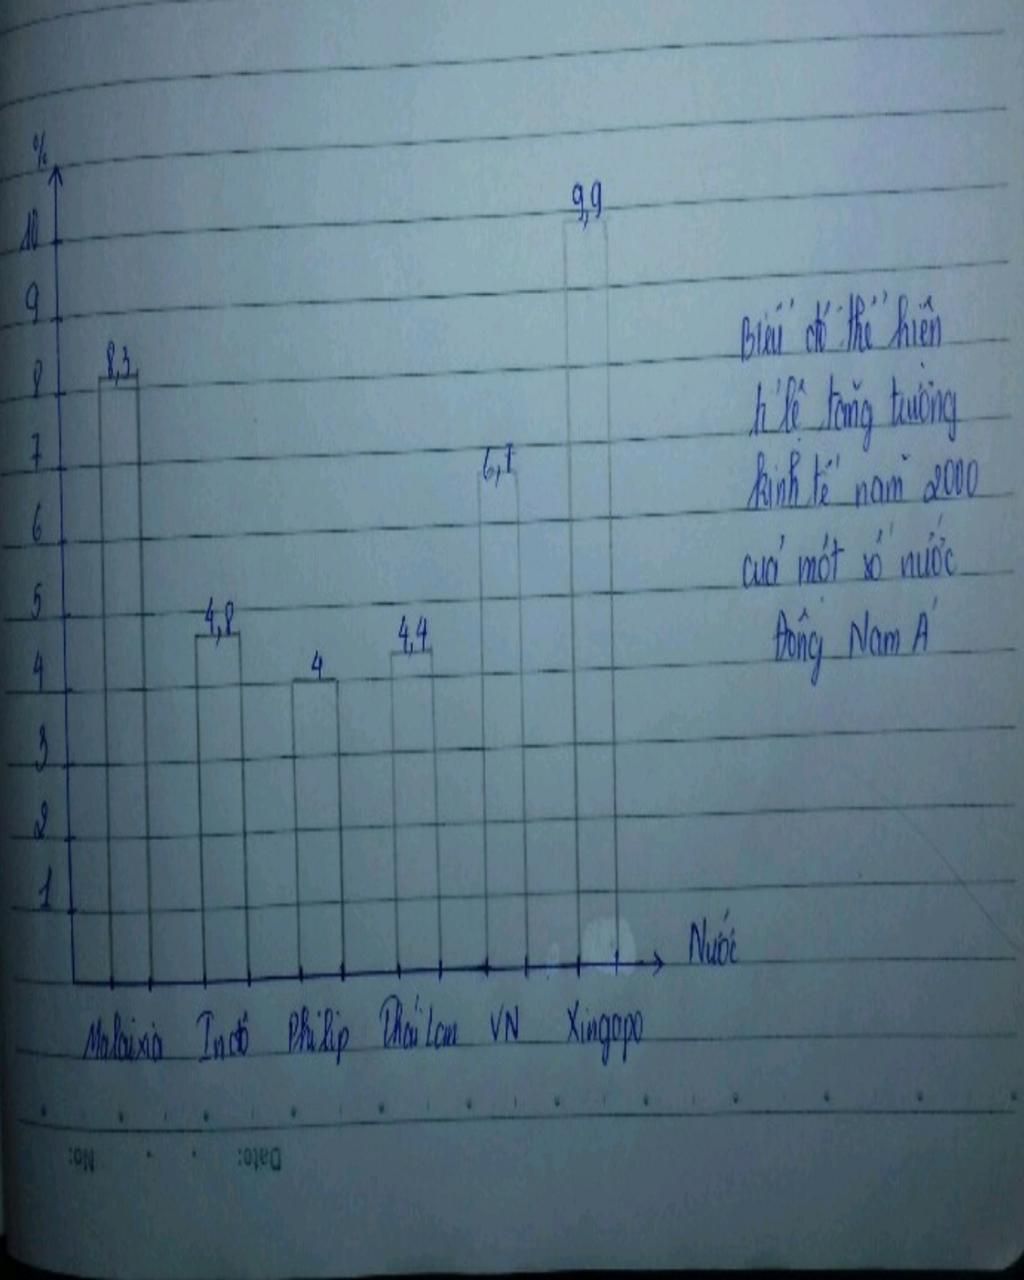 %
10
9
8
7
6
5
4
3
2
1
8,3
4,8
4
4,4
6,7
9,9
Biểu đồ thể hiện
tỉ lệ tăng trưởng
kinh tế năm 2000
của một số nước
Đông Nam Á
Nước
Malaixia Inđô Philip Thái Lan VN Xingapo
No: Date: